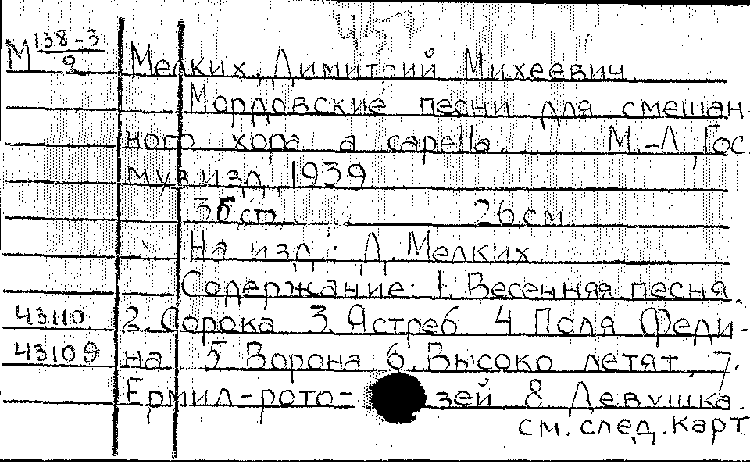 М 138-3/2 Мелких, Димитрий Михеевич
Мордовские песни для смешан-
ного хора a capella. М.-Л, Гос
музизд, 1939
36 ст. 26 см
На изд: Д. Мелких
Содержание: 1. Весенняя песня
43110 2 Сорока 3. Ястреб 4 Поля Фели-
43109 на 5 Ворона 6. Высоко летят, 7.
Ермил-рото- зей 8 Девушка
см. след. карт